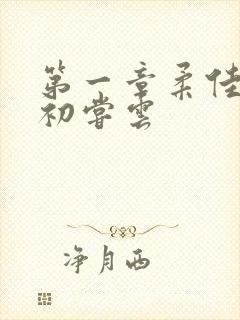 第一章柔佳
初嘗雲
净月西